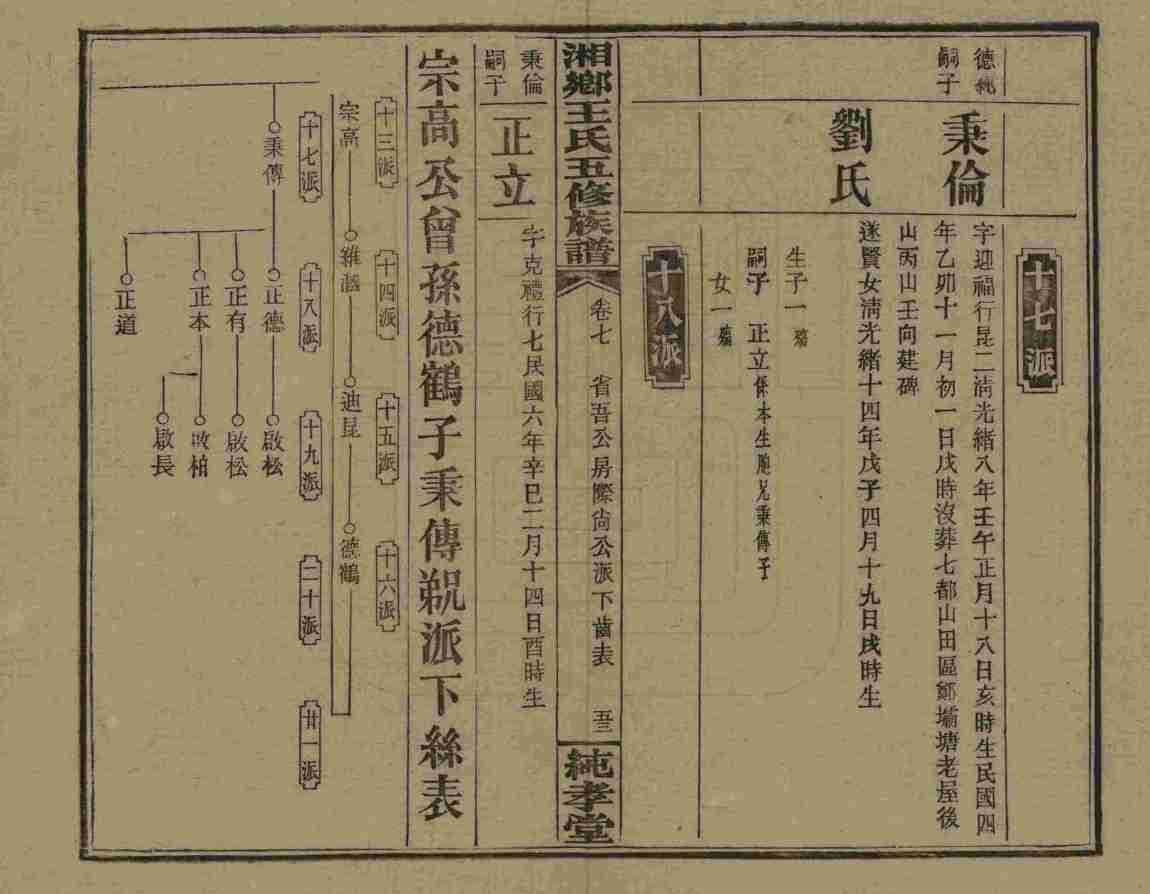 十七派
德純嗣子
秉倫
字迎福行昆二淸光緒八年壬午正月十八日亥時生民國四
年乙卯十一月初一日戌時沒葬七都山田區鄒壩塘老屋後
山丙山壬向建碑
劉氏
遂賢女淸光緒十四年戊子四月十九日戌時生
生子一殤
嗣子 正立係本生胞兄秉傳子
女一殤
十八派
湘鄕王氏五修族譜
卷七 省吾公房際尙公派下齒表 五三
純孝堂
秉倫嗣子
正立
字克禮行七民國六年辛巳二月十四日酉時生
宗高公曾孫德鶴子秉傳覘派下絲表
十三派 十四派 十五派 十六派
宗高 維 迪昆 德鶴
十七派 十八派 十九派 二十派 廿一派
秉傳 正德 啟松
正有 啟松
正本 啟柏
啟長
正道